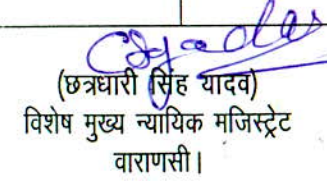 CSYadav
(छत्रधारी सिंह यादव)
विशेष मुख्य न्यायिक मजिस्ट्रेट
वाराणसी।